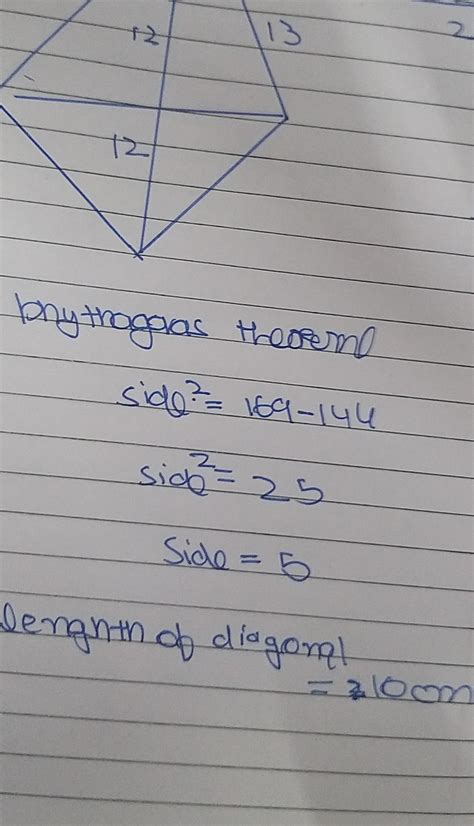 12 13 2
12
phytragaas theorem
side² = 169-144
side² = 25
side = 5
length of diagonal
= 10cm